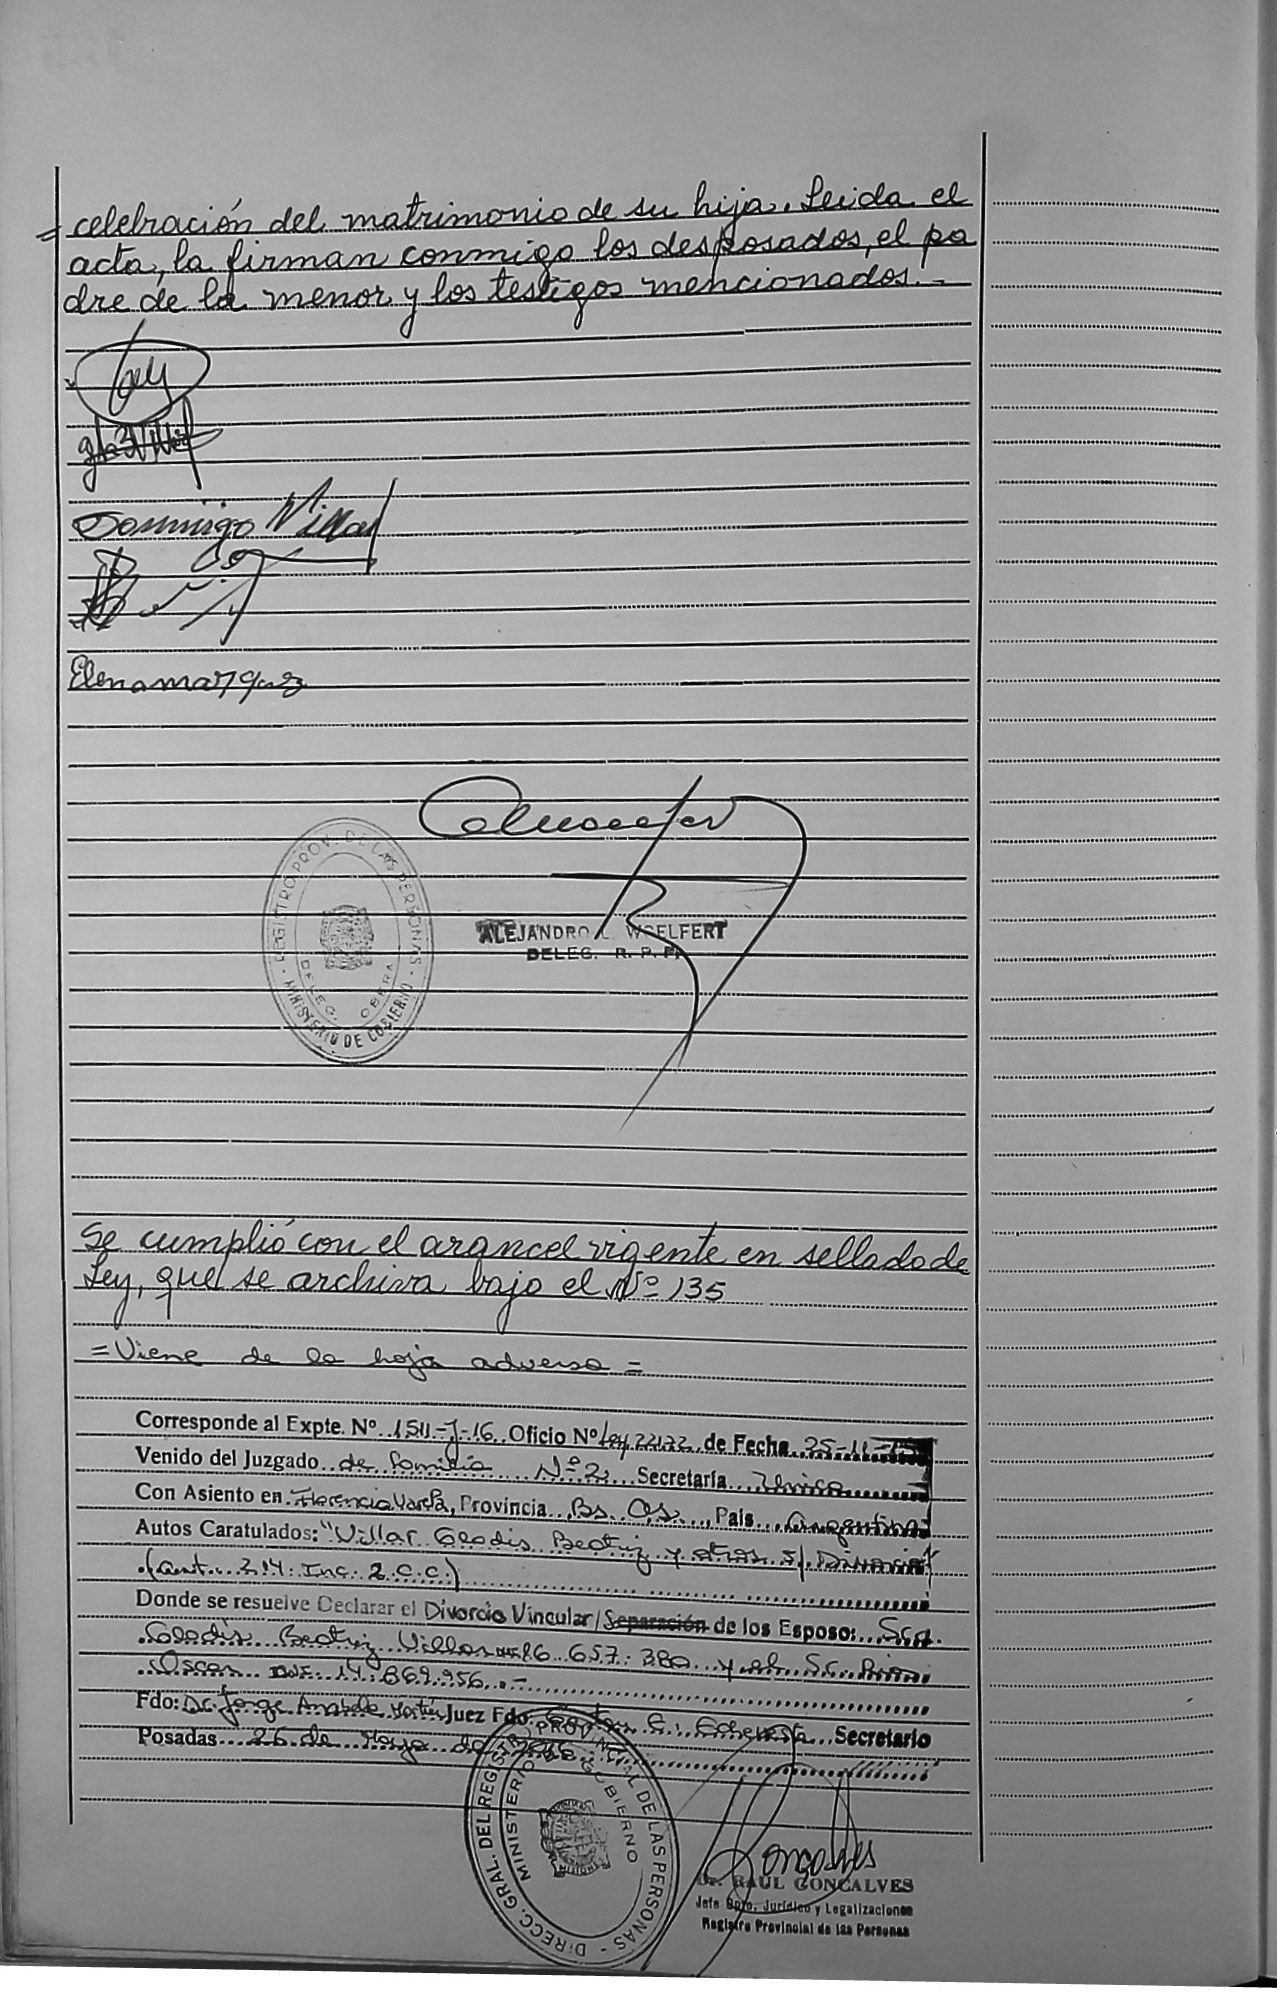 celebración del matrimonio de su hija. Leida el
acta, la firman conmigo los desposados, el pa
dre de la menor y los testigos mencionados.-
Domingo Villar
Elena marquez
REGISTRO PROV. DE LAS PERSONAS
DELEG. OBERA
MINISTERIO DE GOBIERNO
ALEJANDRO WOELFERT
DELEG. R. P. P.
Se cumplió con el arancel vigente en sellado de
Ley, que se archiva bajo el Nº 135
= Viene de la hoja adversa =
Corresponde al Expte. Nº 1511-J-16 Oficio Nº Ley 22172 de Fecha 25-11-15
Venido del Juzgado de familia Nº 2 Secretaría Unica
Con Asiento en Florencio Varela, Provincia Bs. As., País Argentina
Autos Caratulados: "Villar Gladis Beatriz y otros s/ Divorcio
(art. 214 Inc. 2 C.C.)
Donde se resuelve Declarar el Divorcio Vincular/Separación de los Esposo: Sra.
Gladis Beatriz Villar 16.657.380 y el Sr.
Oscar DNI: 14.869.956.-
Fdo: Dr. Jorge Juez Fdo: Secretario
Posadas 26 de Mayo de 2016
DIRECC. GRAL. DEL REGISTRO PROVINCIAL DE LAS PERSONAS
MINISTERIO DE GOBIERNO
MISIONES
Goncalves
Dr. RAUL GONCALVES
Jefe Dpto. Jurídico y Legalizaciones
Registro Provincial de las Personas